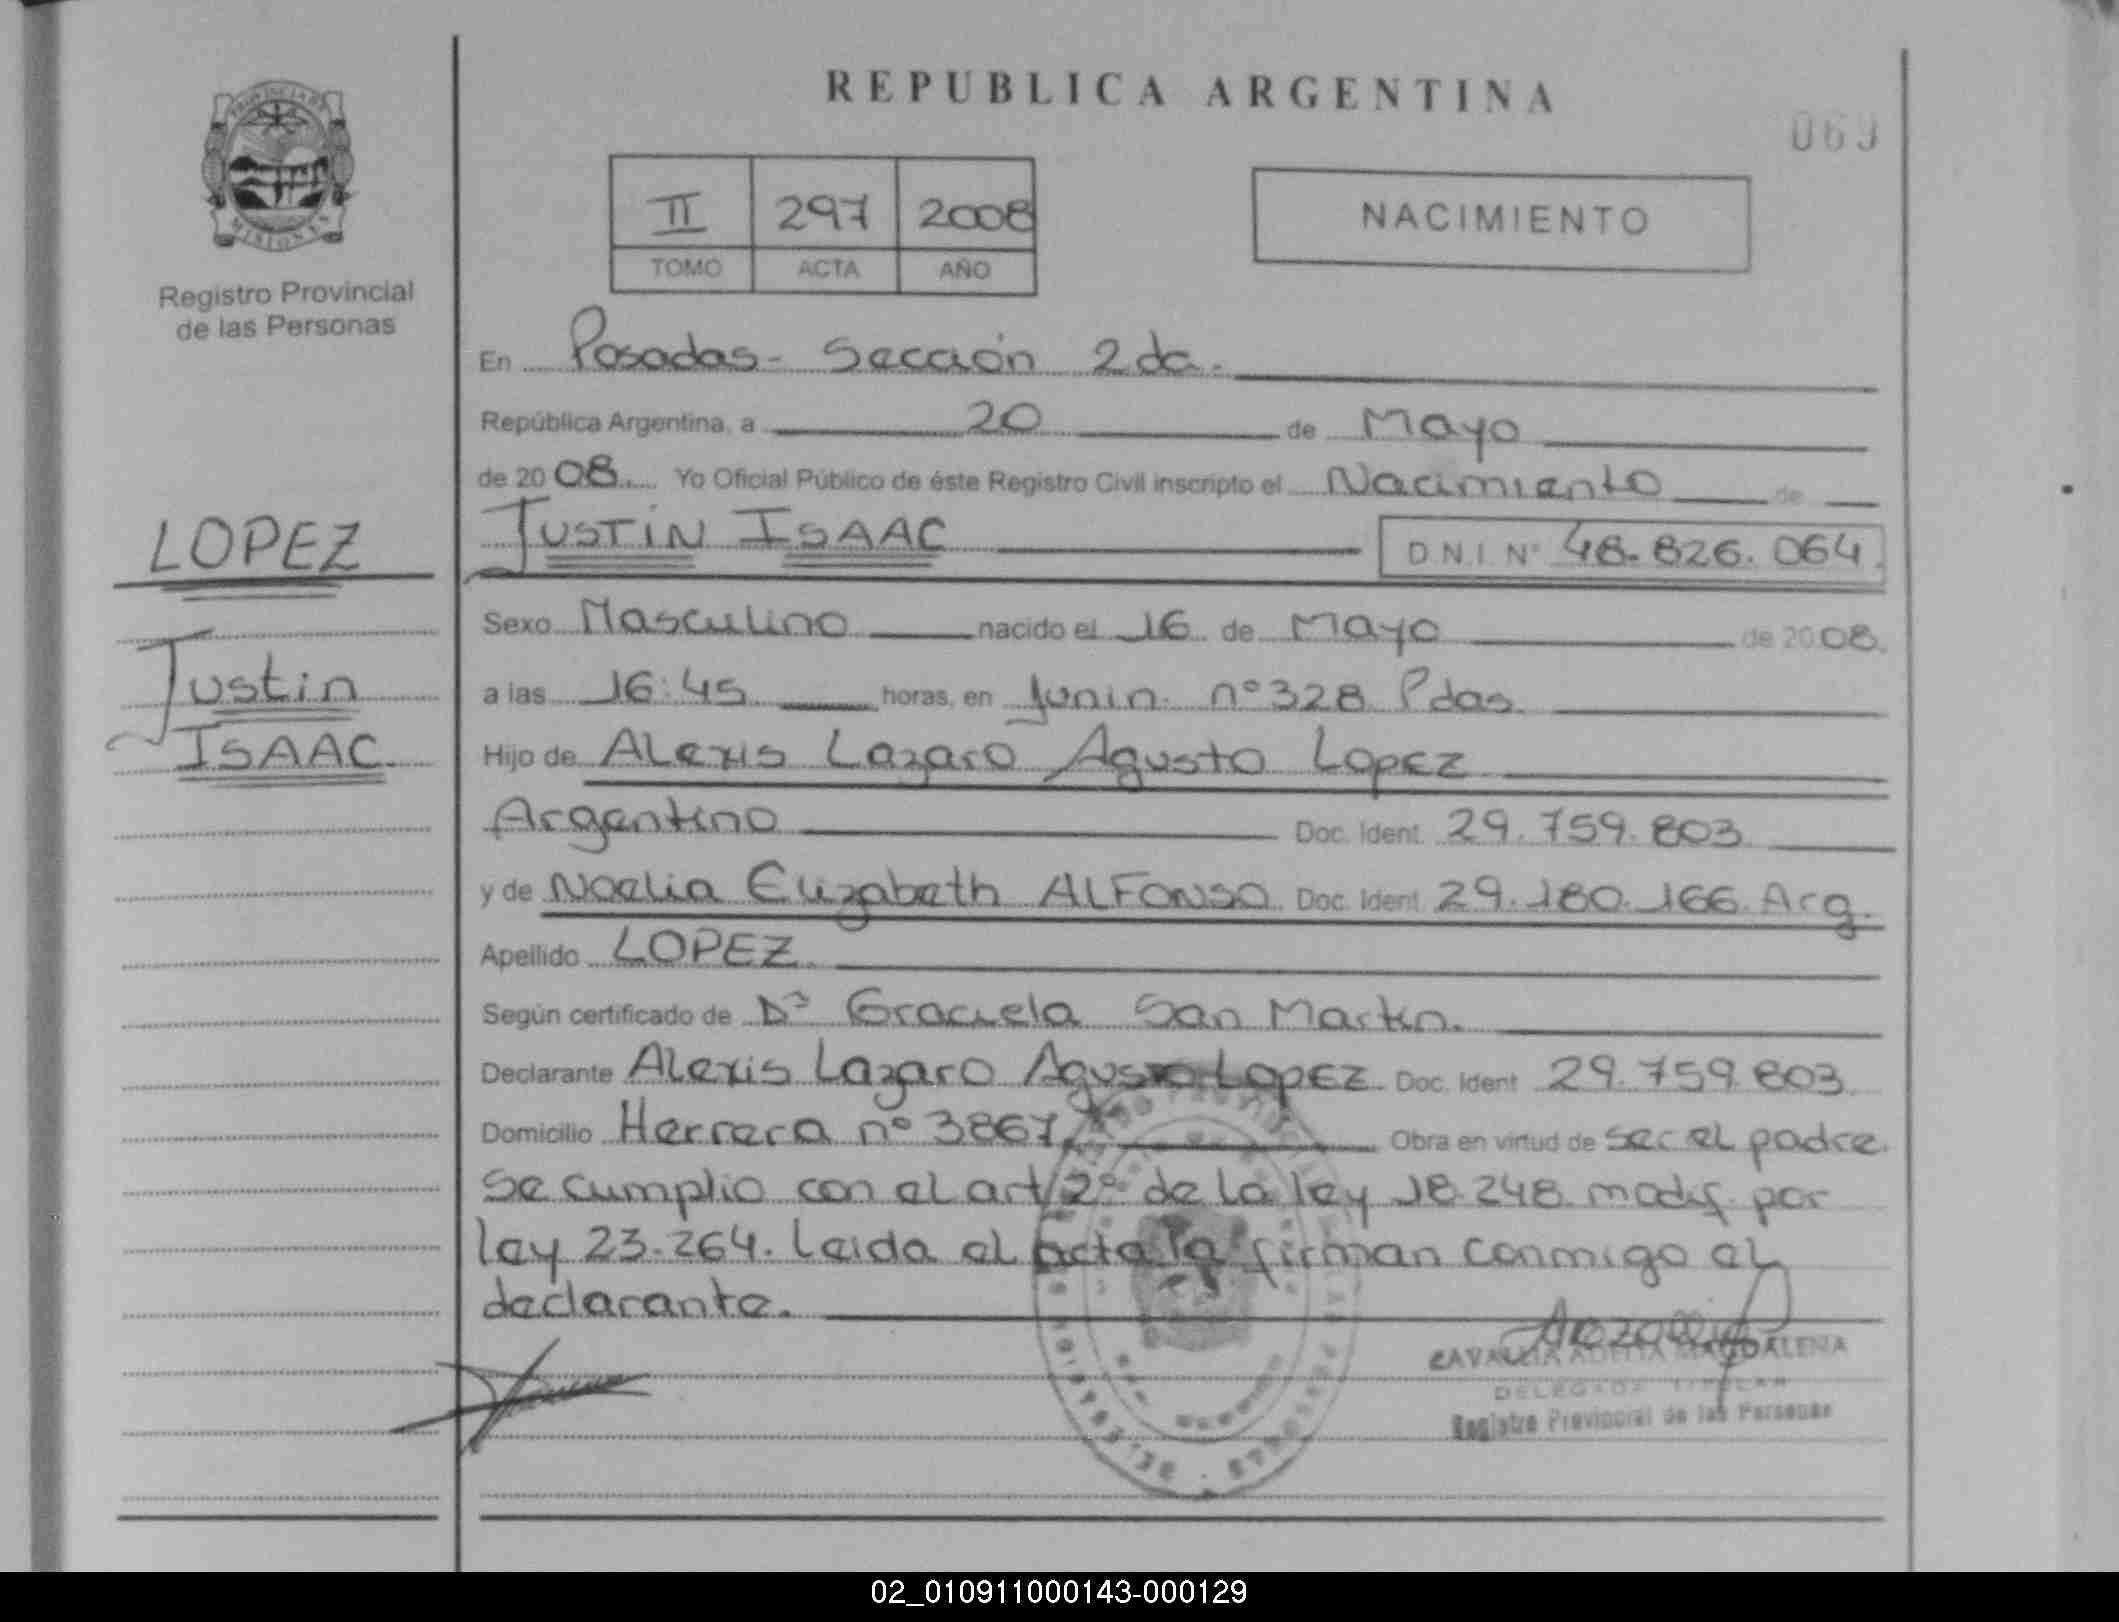 REPUBLICA ARGENTINA
069
PROVINCIA DE
MISIONES
Registro Provincial
de las Personas
II 297 2008
TOMO ACTA AÑO
NACIMIENTO
En Posadas- Sección 2da.
República Argentina, a 20 de Mayo
de 2008 Yo Oficial Público de éste Registro Civil inscripto el Nacimiento de
JUSTIN ISAAC D.N.I. Nº 48.826.064
LOPEZ
Justin
ISAAC
Sexo Masculino nacido el 16 de Mayo de 2008
a las 16:45 horas, en Junin nº 328 Pdas
Hijo de Alexis Lazaro Agusto Lopez
Argentino Doc. Ident. 29.759.803
y de Noelia Elizabeth ALFONSO Doc. Ident. 29.180.166. Arg.
Apellido LOPEZ
Según certificado de Dª Graciela San Martin.
Declarante Alexis Lazaro Agusto Lopez Doc. Ident 29.759.803
Domicilio Herrera nº 3867 Obra en virtud de ser el padre
se cumplio con el art 2º de la ley 18.248 modif. por
ley 23.264. Leida el acta la firman conmigo el
declarante.
MAGDALENA
DELEGADA TITULAR
Registro Provincial de las Personas
02_010911000143-000129